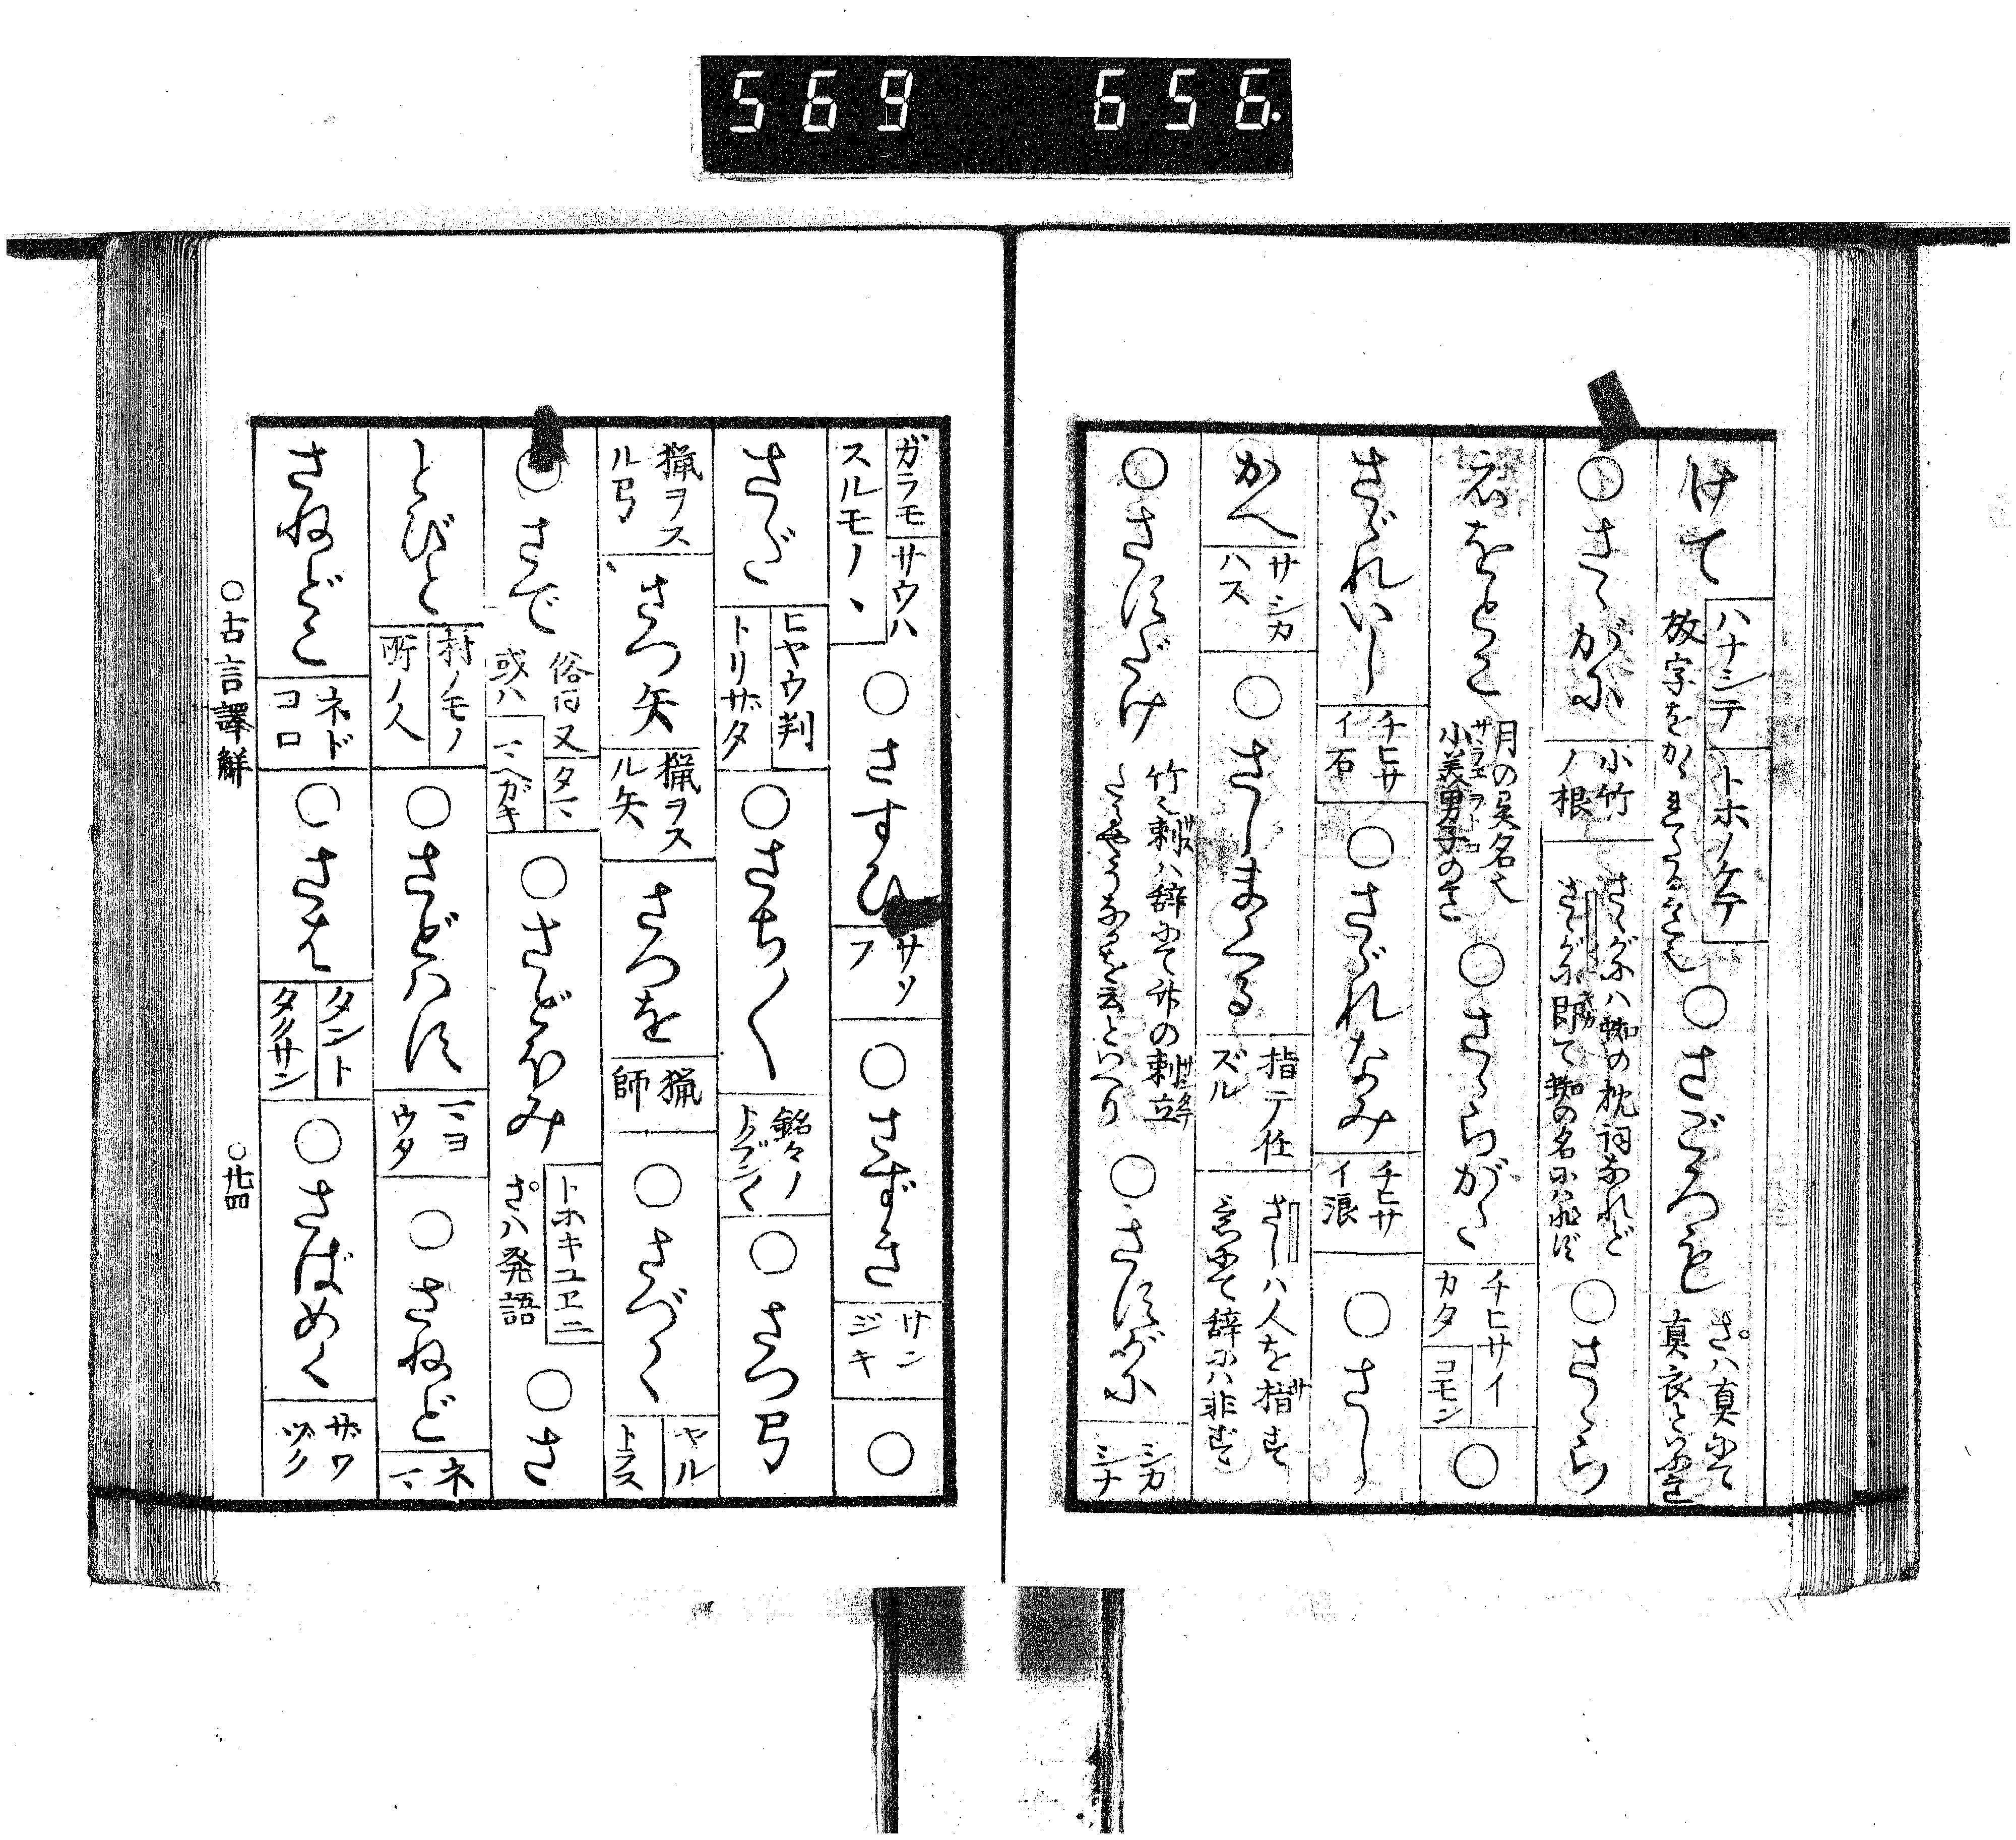 569 656.
けて ハナシテ トホノケテ 放字をかゝれたるこゝろ也 ○さごろも さハ真にて真衣といふ
○さゝがに 小竹ノ根 さゝがにハ蜘の枕詞なれどさゝがに即て蜘の名にハ非ず ○さゝら
えをとこ 月の異名也 小美男子の ○さゝらがた チヒサイカタ コモン ○
さゞれいし チヒサイ石 ○さゞれなみ チヒサイ浪 ○さし
かへ サシカハス ○さしまくる 指テ任ズル さしハ人を指す意にて辞にハ非ず
○さすだけ 竹の刺ハ辞にて の刺立 といへり ○さすがに シカシナ
ガラモ サウハスルモノヽ ○さすひ サソフ ○さずき サンジキ ○
さだ ヒヤウ判 トリザタ ○さち〳〵 銘々ノトクブン〳〵 ○さつ弓
猟ヲスル弓 さつ矢 猟ヲスル矢 さつを 猟師 ○さづく ヤル トラス
○さで 俗同又タマ 或ハ ガキ ○さどほみ トホキユヱニ さハ発語 ○さ
とびと 村ノモノ 所ノ人 ○さどハす マヨウタ ○さねど ネマ
さねどこ ネドコロ ○さは タント タクサン ○さばめく ザワヅク
○古言譯解 ○廿四